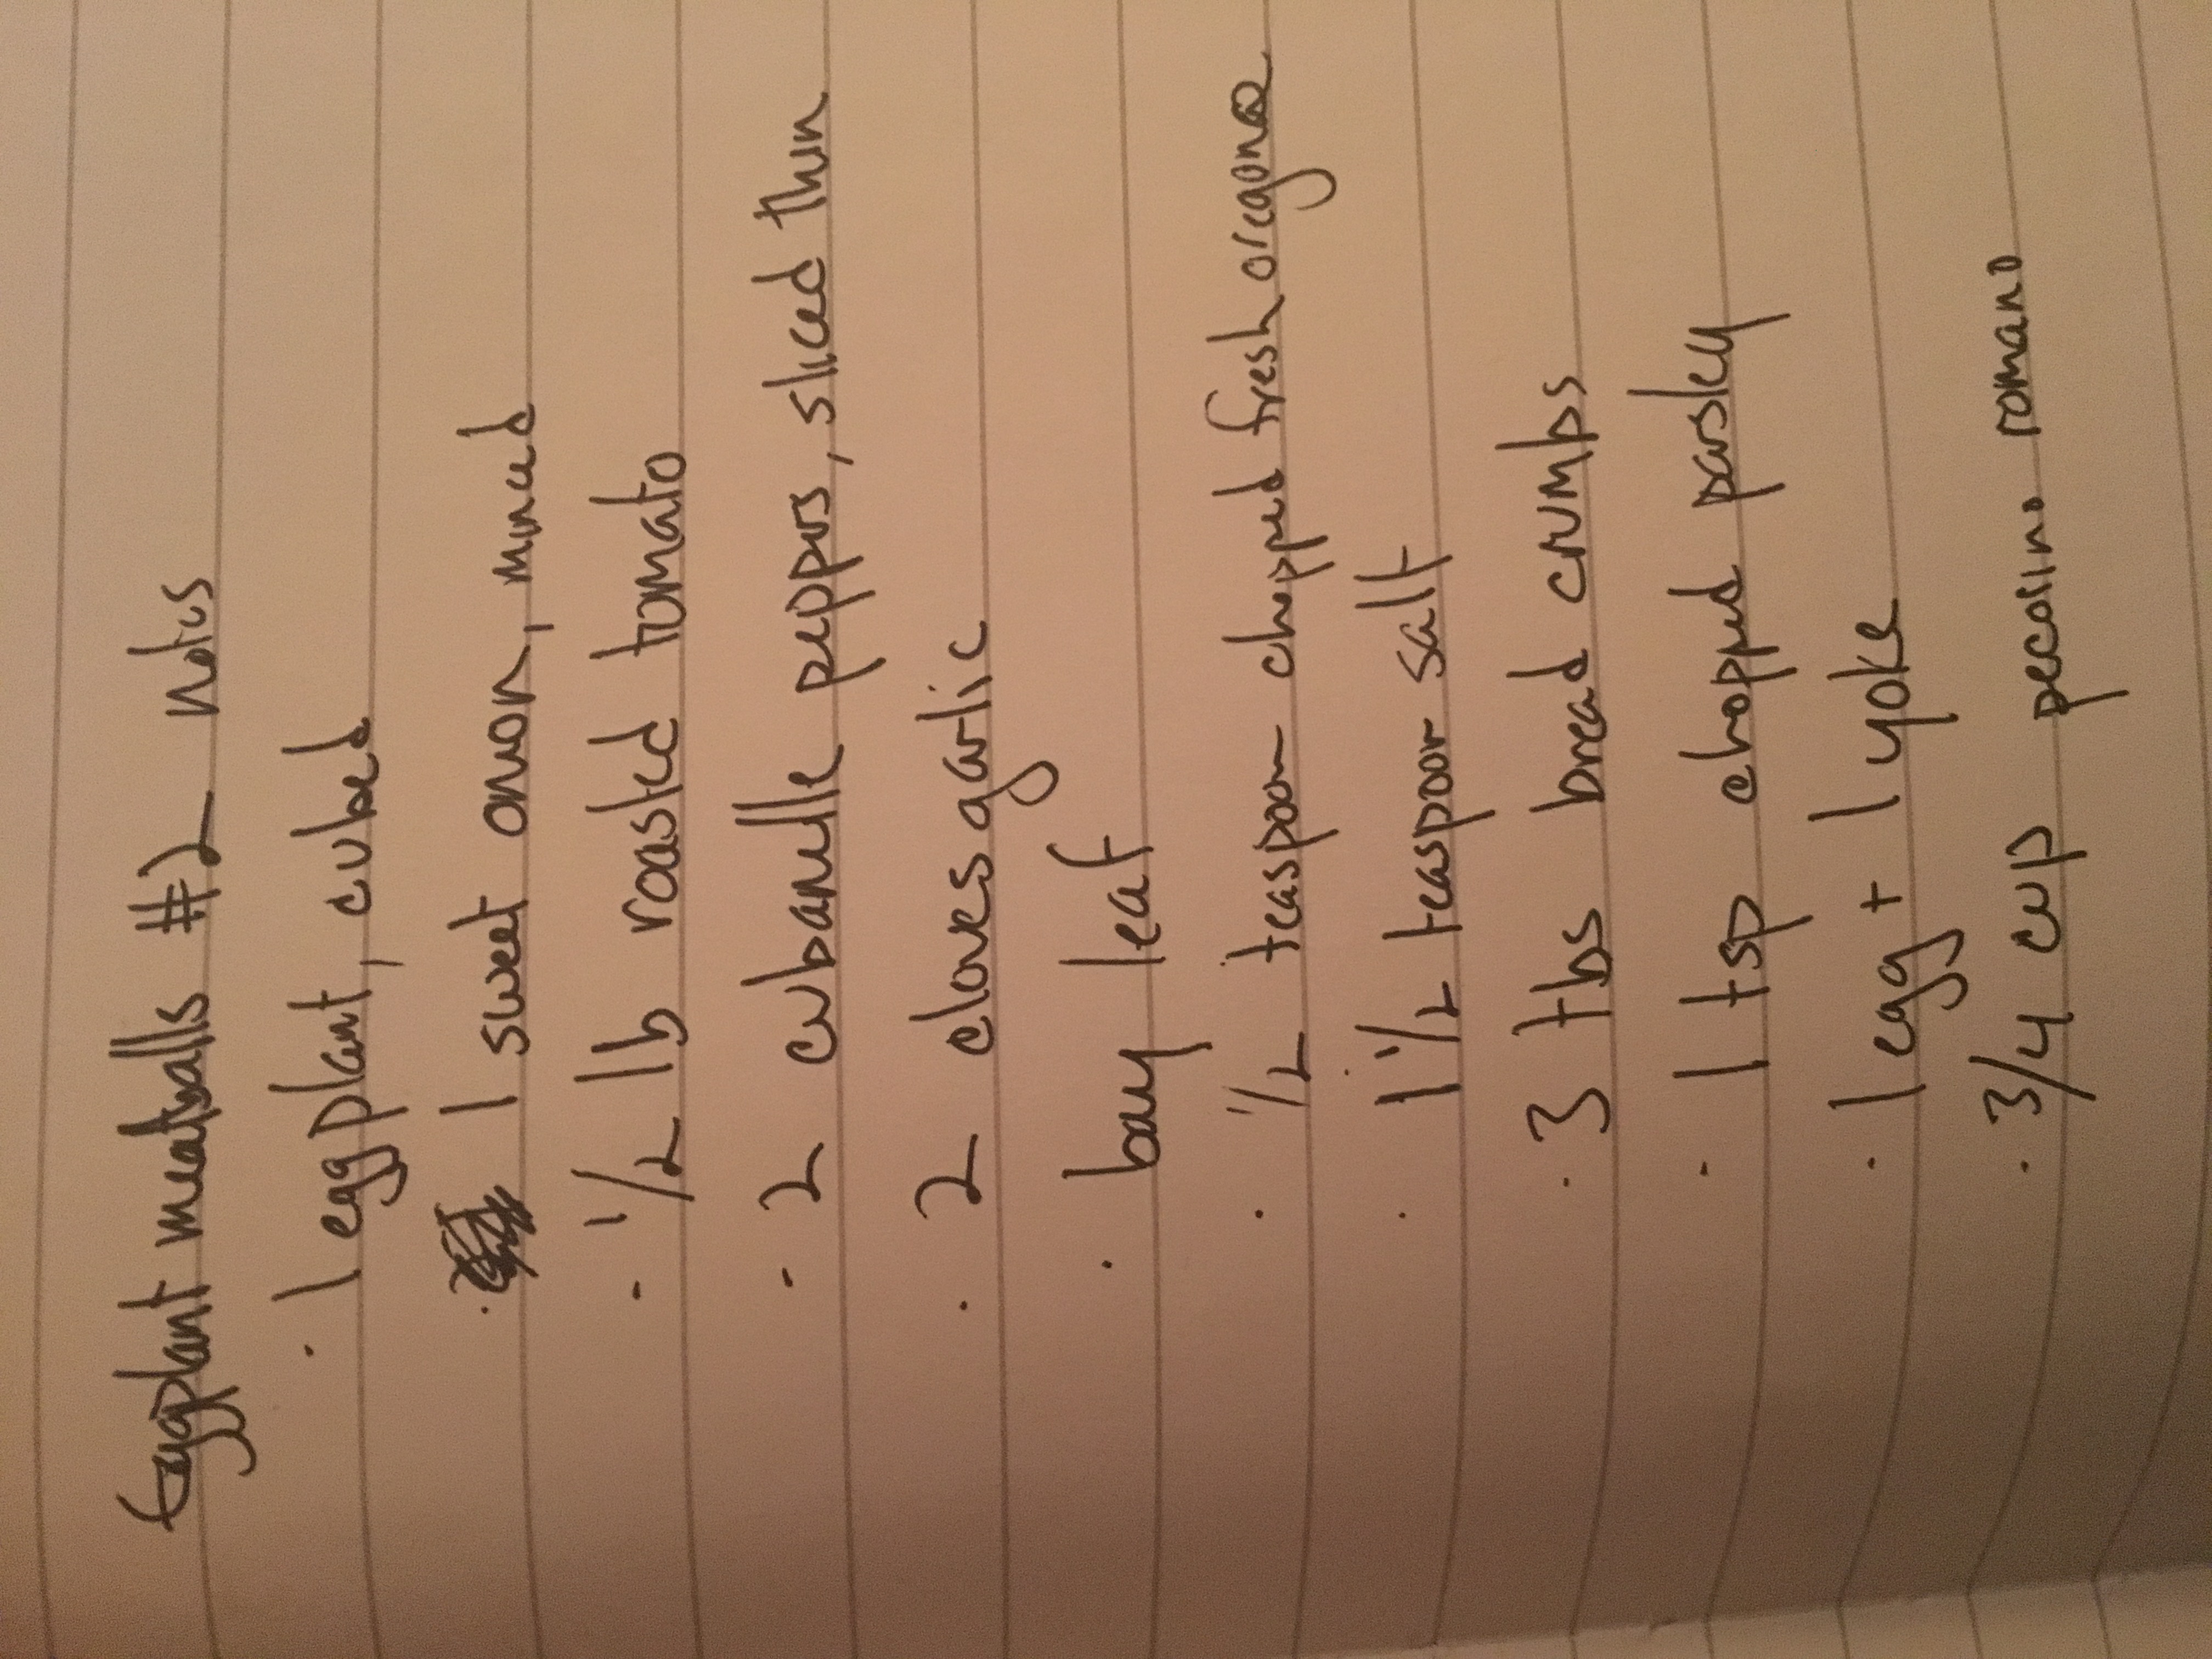 Eggplant meatballs #2 notes
· 1 eggplant, cubed
· 1 sweet onion, minced
- 1/2 lb roasted tomato
- 2 cubanelle peppers, sliced thin
· 2 cloves garlic
· bay leaf
· 1/2 teaspoon chopped fresh oregano
· 1 1/2 teaspoon salt
· 3 tbs bread crumbs
- 1 tsp chopped parsley
· 1 egg + 1 yoke
· 3/4 cup pecorino romano